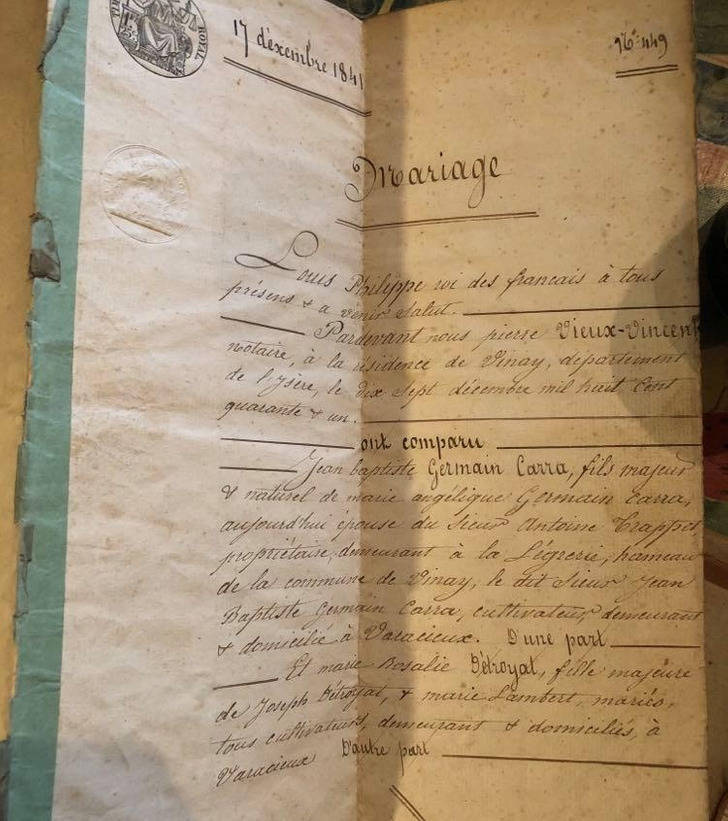 ROYAL
17 décembre 1841
N.º 449
Mariage
Louis Philippe roi des francais à tous
présens & a venir Salut.
Pardevant nous pierre Vieux-Vincent
notaire, à la résidence de Vinay, département
de l'ysère, le dix sept décembre mil huit cent
quarante & un.
ont comparu
Jean baptiste Germain Carra, fils majeur
& naturel de marie angélique Germain Carra,
aujourd'hui épouse du sieur Antoine Trappet,
propriétaire, demeurant à la Légrerie, hameau
de la commune de Vinay, le dit Sieur Jean
Baptiste Germain Carra, cultivateur, demeurant
& domicilié à Varacieux. D'une part
Et marie Rosalie Détroyat, fille majeure
de Joseph Détroyat, & marie Lambert, mariés,
tous cultivateurs, demeurant & domiciliés, à
Varacieux D'autre part